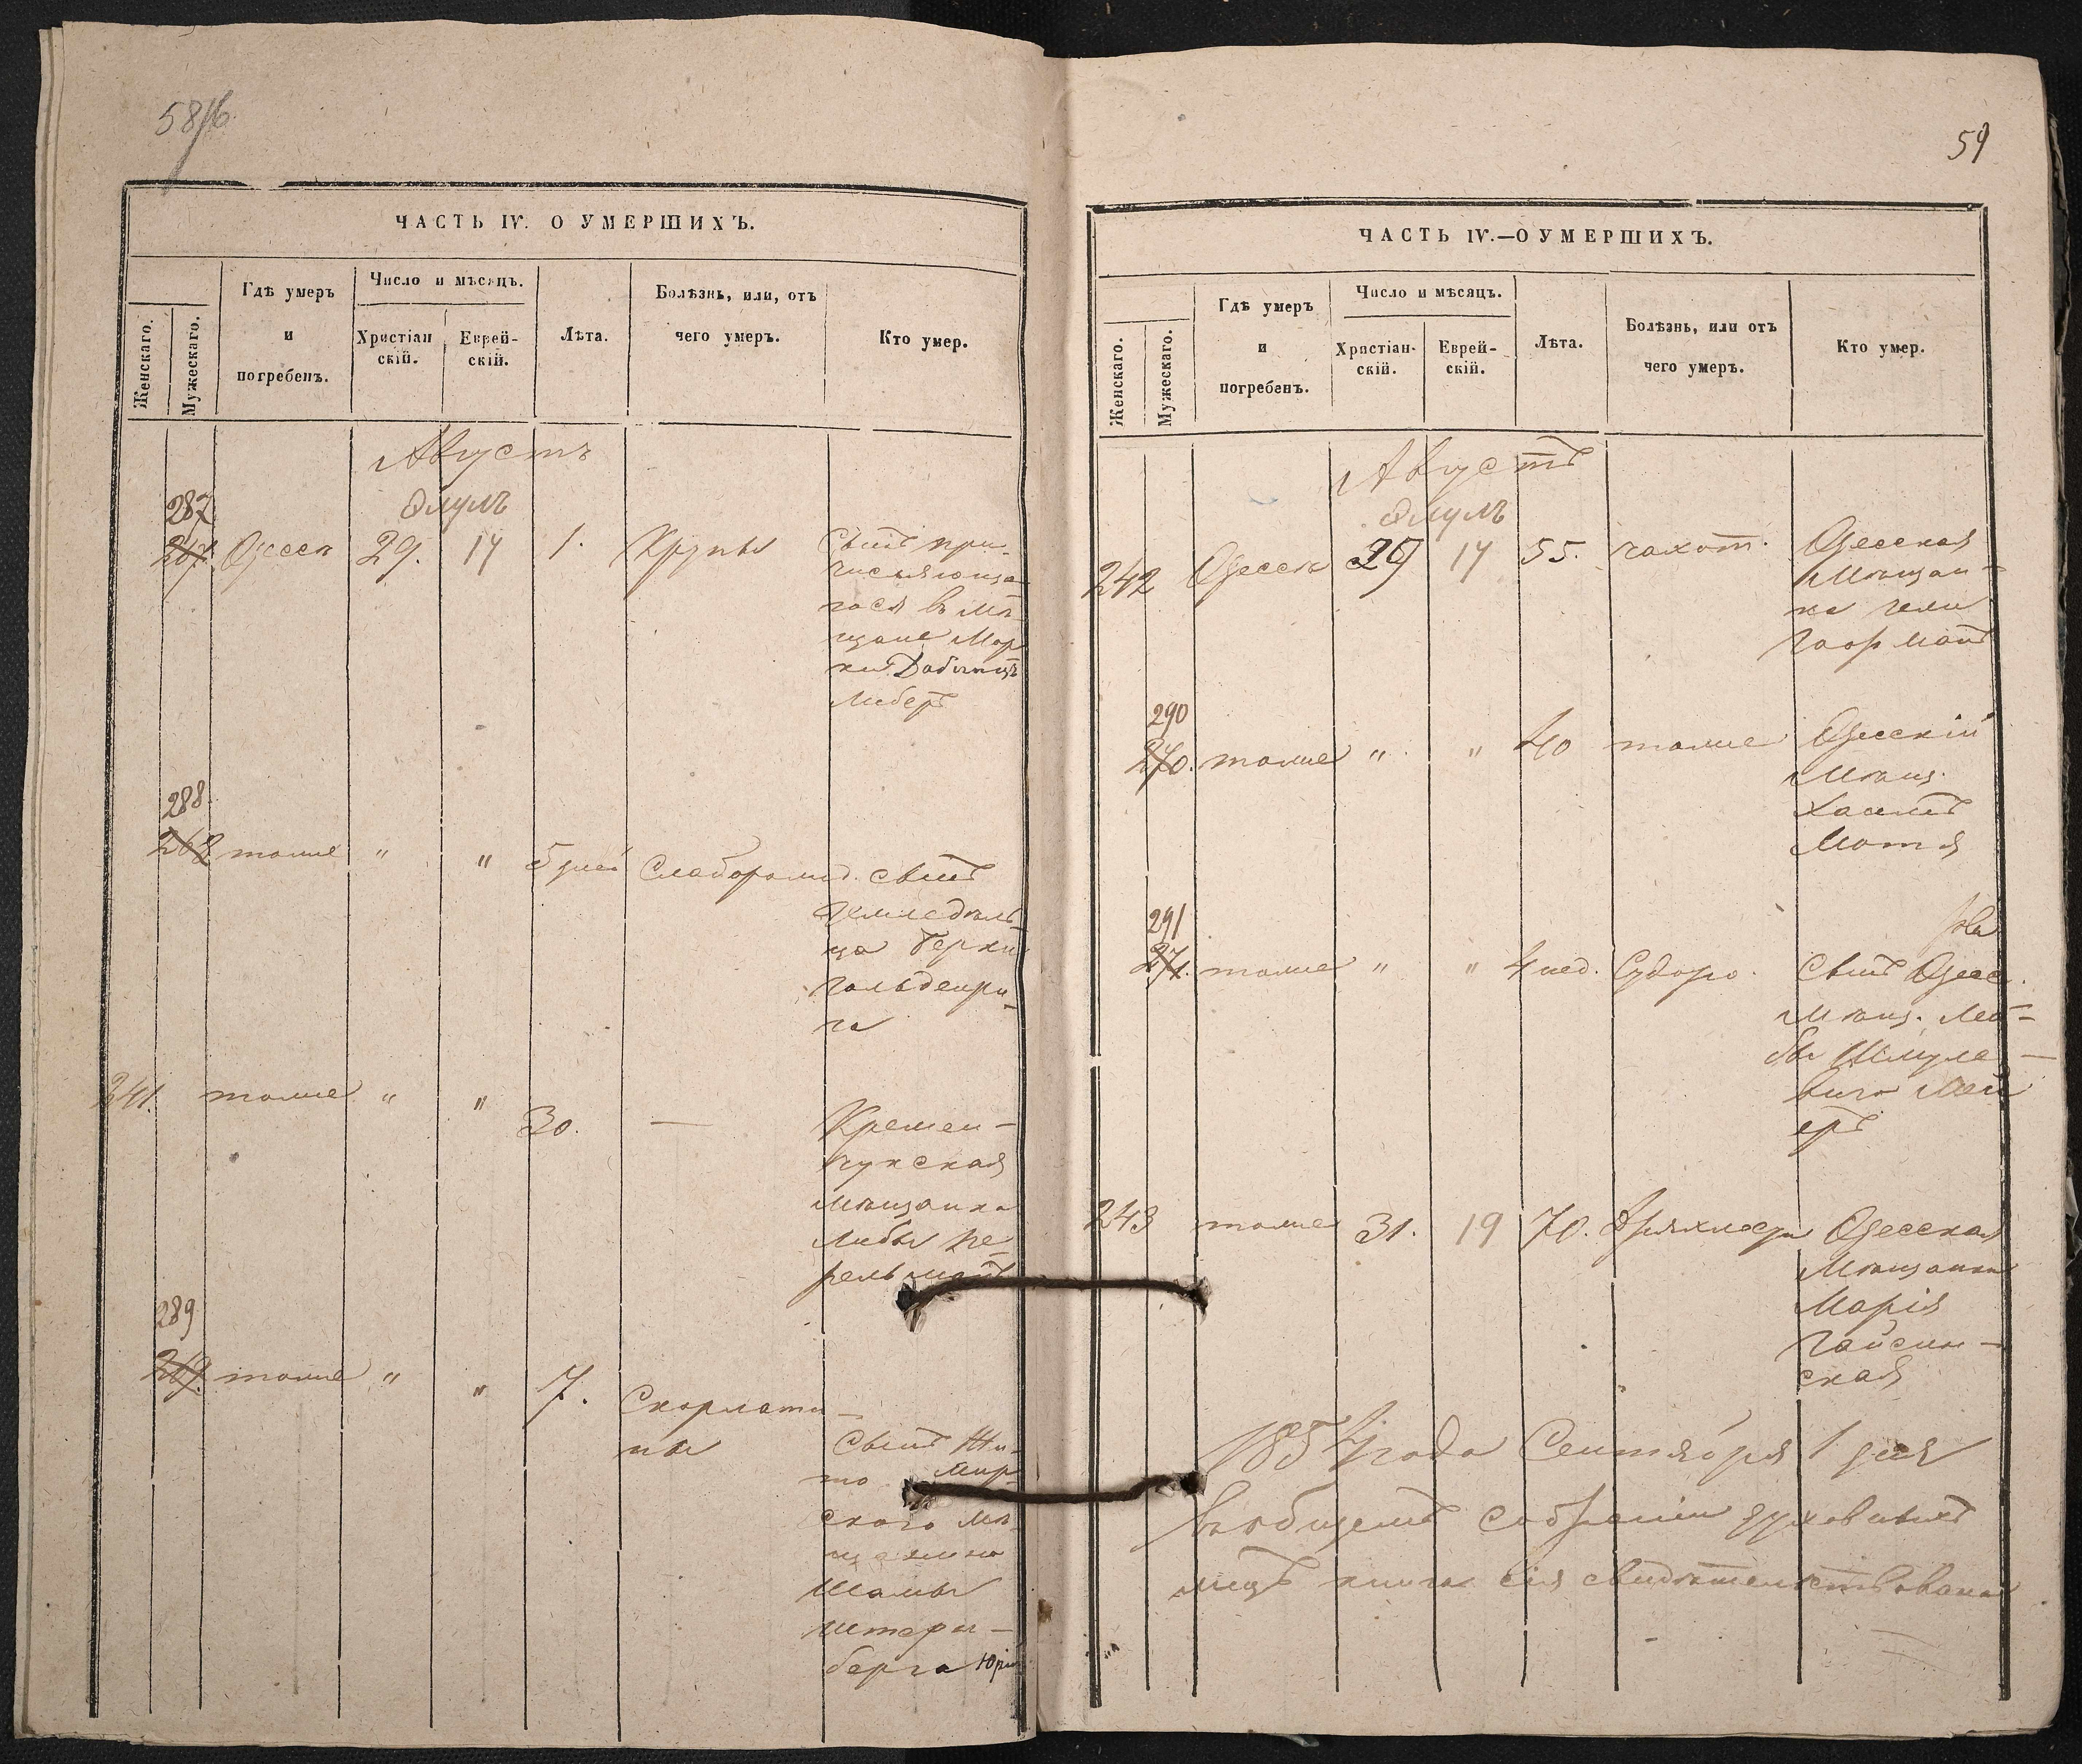 58/16
ЧАСТЬ IV. О УМЕРШИХЪ.
Женскаго.
Мужескаго.
Гдѣ умеръ
и
погребенъ.
Число и мѣсяцъ.
Христіан
скій.
Еврей-
скій.
Лѣта.
Болѣзнь, или, отъ
чего умеръ.
Кто умер.
Августъ
Элулъ
287
267. Одесса 29. 17 1. Крупы Сынъ при-
числяюща
гося въ мѣ-
щане Мор
ки
Либеръ
288.
268 тоже " " 5 дней Слаборожд. сынъ
земледѣль-
ца Берки
Гольденри-
га
241. тоже " " 30. — Кремен-
чукская
мѣщанка
Либа Пе-
рельманъ
289
269. тоже " " 7. Скорлати-
ны
Сынъ Жи-
то мир
скаго мѣ-
щанина
Шамы
Штерн-
берга Юрій
59
ЧАСТЬ IV.—О УМЕРШИХЪ.
Женскаго.
Мужескаго.
Гдѣ умеръ
и
погребенъ.
Число и мѣсяцъ.
Христіан-
скій.
Еврей-
скій.
Лѣта.
Болѣзнь, или отъ
чего умеръ.
Кто умер.
Августъ
Элулъ
242 Одесса 29 17 55. чахот. Одесская
мѣщан-
ка
290
270. тоже " " 40 тоже Одесскій
мѣщ.
Хаимъ
Мотя
291
271. тоже " " 4 нед. Судоро. Сынъ Одес.
мѣщ. Лей-
бы Шмуле-
вича Мей
еръ
243 тоже 31. 19 70. Дряхлости Одесская
мѣщанка
Марія
Гайсин-
ская
1857 года Сентября 1 дня
въ общемъ собраніи духовныхъ
лицъ книга сія свидѣтельствована